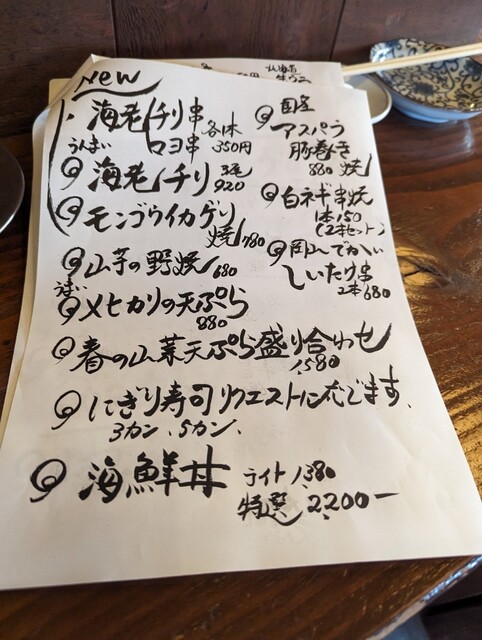 New
海老チリ串
マヨ串 各1本 350円
うんまい
海老チリ 3尾 920
モンゴウイカゲソ
焼 780
山芋の野焼 680
うまい
メヒカリの天ぷら
880
春の山菜天ぷら盛り合わせ
1580
にぎり寿司リクエストに応じます、
3カン、5カン、
海鮮丼 ライト 1380
特選 2,200ー
国産
アスパラ
豚巻き
880 焼
白ネギ串焼
1本150
(2本セット)
岡山でかい
しいたけ串
2本680
北海道